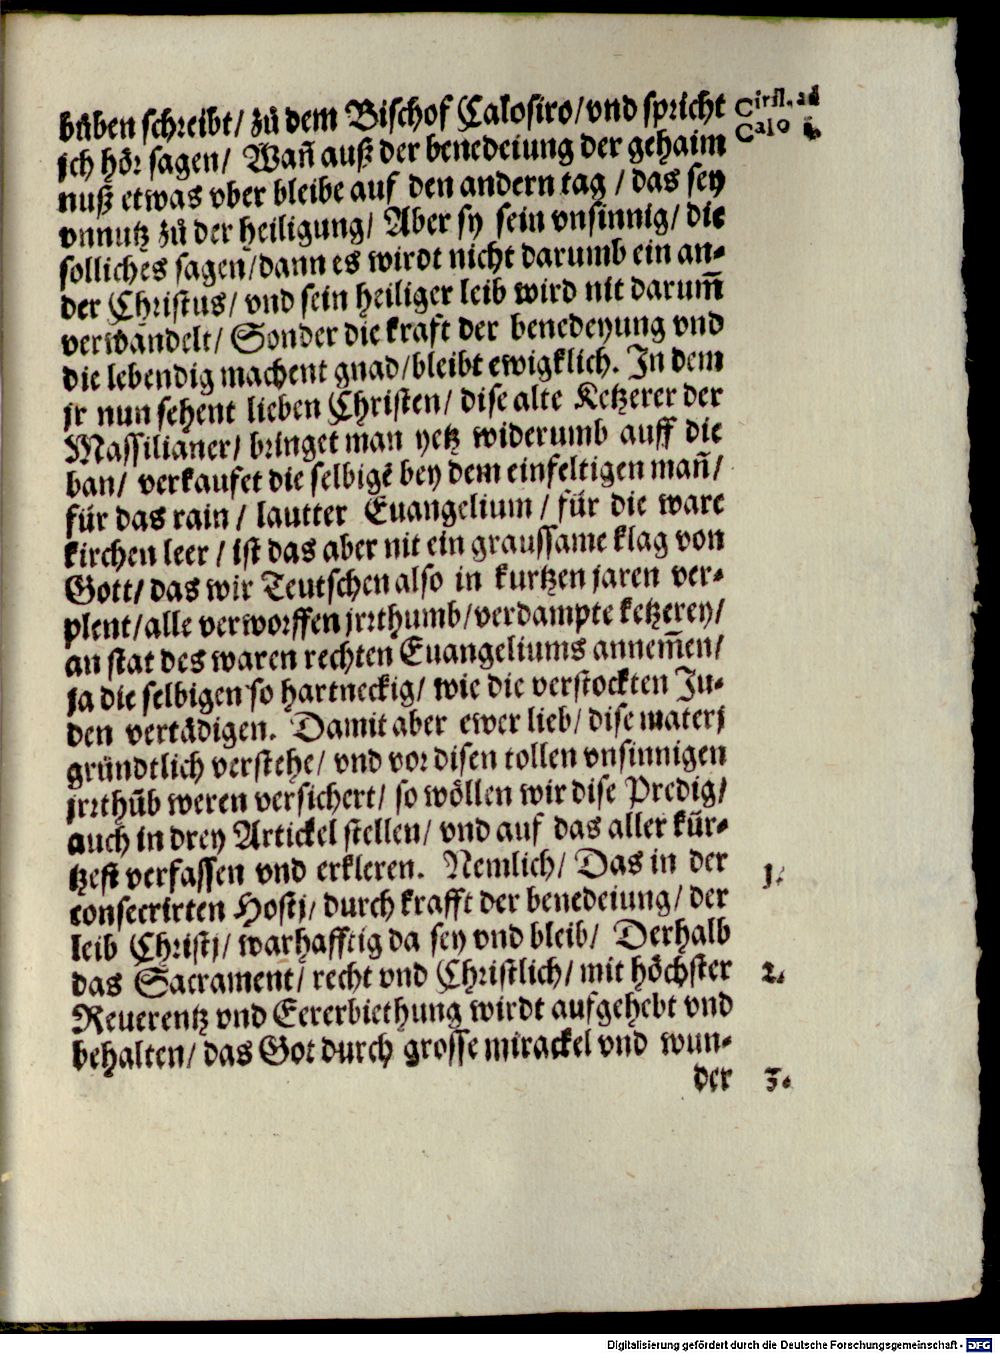 bůben schreibt/ zů dem Bischof Calosiro/ vnd spricht
jch hör sagen/ Wañ auß der benedeiung der gehaim
nuß etwas vber bleibe auf den andern tag / das sey
vnnutz zů der heiligung/ Aber sy sein vnsinnig/ die
solliches sagen/ dann es wirdt nicht darumb ein an-
der Christus/ vnd sein heiliger leib wird nit darum̃
verwandelt/ Sonder die kraft der benedeyung vnd
die lebendig machent gnad/ bleibt ewigklich. In dem
jr nun sehent lieben Christen/ dise alte Ketzerer der
Massilianer/ bringet man yetz widerumb auff die
ban/ verkaufet die selbigẽ bey dem einfeltigen mañ/
für das rain / lautter Euangelium / für die ware
kirchen leer / ist das aber nit ein graussame klag von
Gott/ das wir Teutschen also in kurtzen jaren ver-
plent/ alle verworffen jrrthumb/ verdampte ketzerey/
an stat des waren rechten Euangeliums annem̃en/
ja die selbigen so hartneckig/ wie die verstockten Ju-
den vertädigen. Damit aber ewer lieb/ dise materj
gründtlich verstehe/ vnd vor disen tollen vnsinnigen
jrrthũb weren versichert/ so wöllen wir dise Predig/
auch in drey Artickel stellen/ vnd auf das aller kür-
tzest verfassen vnd erkleren. Nemlich/ Das in der
consecrirten Hostj/ durch krafft der benedeiung/ der
leib Christj/ warhafftig da sey vnd bleib/ Derhalb
das Sacrament/ recht vnd Christlich/ mit höchster
Reuerentz vnd Eererbiethung wirdt aufgehebt vnd
behalten/ das Got durch grosse mirackel vnd wun-
der
Ciril. ad
Calo
1.
2.
3.
Digitalisierung gefördert durch die Deutsche Forschungsgemeinschaft - DFG